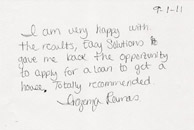 9-1-11
I am very happy with
the results, Easy Solutions
gave me back the opportunity
to apply for a loan to get a
house. Totally recommended
Ramos